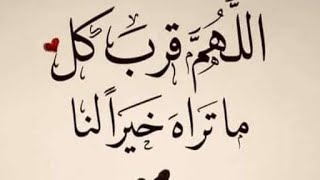 اللَّهُمَّ قرب كل
ما تراه خيراً لنا